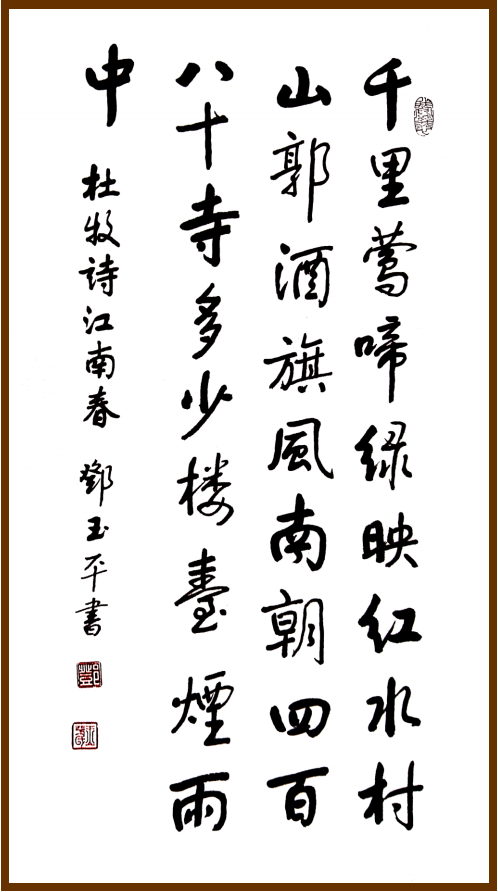 千里莺啼绿映红水村
山郭酒旗風南朝四百
八十寺多少楼臺煙雨
中
杜牧詩江南春 鄧玉平書